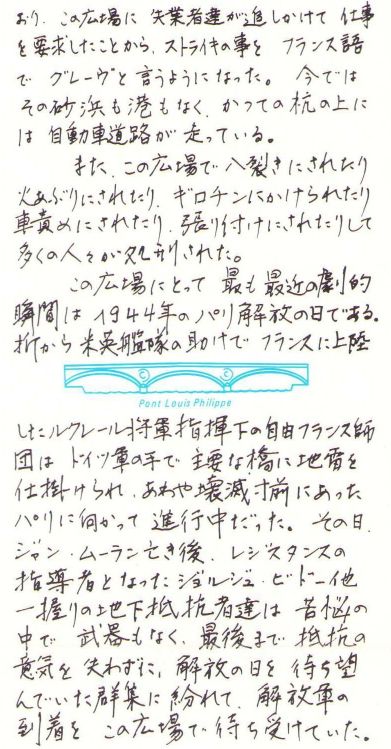 おり、この広場に 失業者達が追しかけて 仕事
を要求したことから、ストライキの事を フランス語
で グレーヴと言うようになった。 今では
その砂浜も港もなく、かつての杭の上に
は 自動車道路が 走っている。
また、この広場で 八裂きにされたり
火あぶりにされたり、ギロチンにかけられたり
車責めにされたり、張り付けにされたりして
多くの人々が処刑された。
この広場にとって 最も最近の劇的
瞬間は 1944年のパリ解放の日である。
折から 米英艦隊の助けで フランスに上陸
Pont Louis Philippe
したルクレール将軍指揮下の自由フランス師
団は ドイツ軍の手で 主要な橋に地雷を
仕掛けられ、あわや壊滅寸前にあった
パリに向かって 進行中だった。 その日、
ジャン・ムーラン亡き後、レジスタンスの
指導者となったジョルジュ・ビドー他
一握りの地下抵抗者達は 苦悩の
中で 武器もなく、最後まで 抵抗の
意気を 失わずに、解放の日を 待ち望
んでいた群集に 紛れて、解放軍の
到着を この広場で 待ち受けていた。